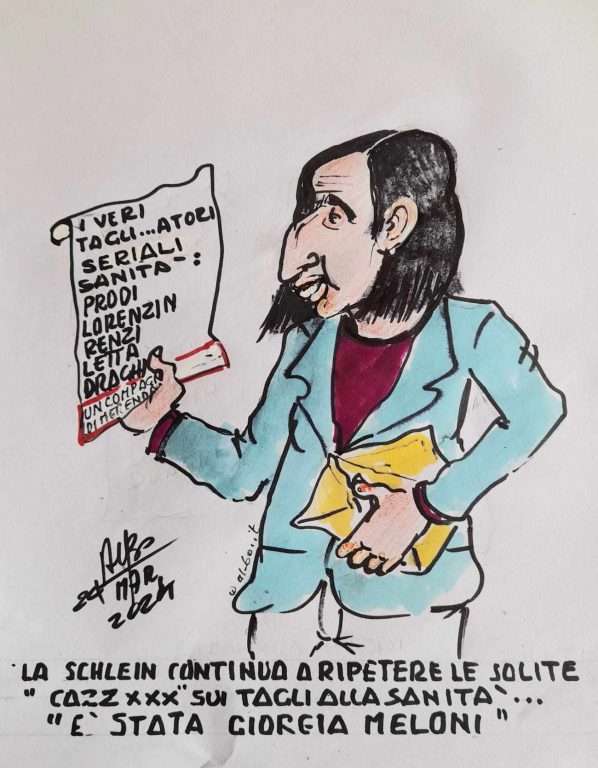 I VERI
TAGLI...ATORI
SERIALI
SANITA-:
PRODI
LORENZIN
RENZI
LETTA
DRAGHI
UN COMPAGNO
DI MERENDA
ALBO
24
MAR
2024
w al-bo.it
LA SCHLEIN CONTINUA A RIPETERE LE SOLITE
"CAZZXXX" SUI TAGLI ALLA SANITA'...
"E' STATA GIORGIA MELONI"